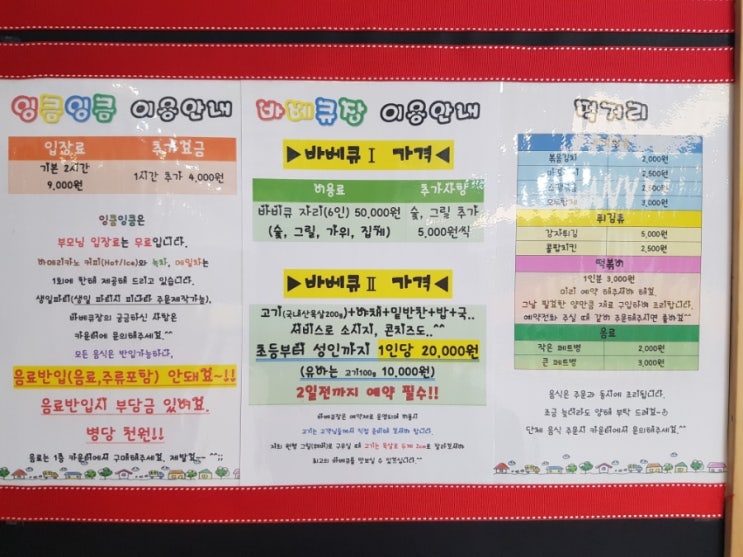 잉큼잉큼 이용안내
입장료 추가요금
기본 2시간
9,000원
1시간 추가 4,000원
잉큼잉큼은
부모님 입장료는 무료입니다.
아메리카노 커피(Hot/Ice)와 녹차, 메밀차는
1회에 한해 제공해 드리고 있습니다.
생일파티(생일 파티시 피자파티 주문제작가능).
바베큐장의 궁금하신 사항은
카운터에 문의해주세요.^^
모든 음식은 반입가능하나,
음료반입(음료,주류포함) 안돼요~!!
음료반입시 부담금 있어요.
병당 천원!!
음료는 1층 카운터에서 구매해주세요. 제발요~ ^^;;
바베큐장 이용안내
▶바베큐Ⅰ 가격◀
비용료 추가사항
바비큐 자리(6인) 50,000원
(숯, 그릴, 가위, 집게)
숯, 그릴 추가
5,000원씩
▶바베큐Ⅱ 가격◀
고기(국내산목살200g)+야채+일반찬+밥+국..
서비스로 소시지, 콘치즈도..^^
초등부터 성인까지 1인당 20,000원
(유아는 고기100g 10,000원)
2일전까지 예약 필수!!
바베큐장은 예약제로 운영되며
고기는 고객님들께서 직접 준비해 오셔야 합니다.
최고의 바베큐를 맛보실 수 있을겁니다.^^
먹거리
볶음김치 2,000원
2,500원
2,500원
모듬탑채 3,000원
튀김류
감자튀김 5,000원
콜팝치킨 2,500원
떡볶이
1인분 3,000원
미리 예약 해주셔야 해요.
그날 필요한 양만큼 재료 구입하여 조리합니다.
예약전화 주실 때 같이 주문해주시면 좋아요^^
음료
작은 페트병 2,000원
큰 페트병 3,000원
음식은 주문과 동시에 조리됩니다.
조금 늦더라도 양해 부탁 드려요~
단체 음식 주문시 카운터에서 문의해주세요.^^